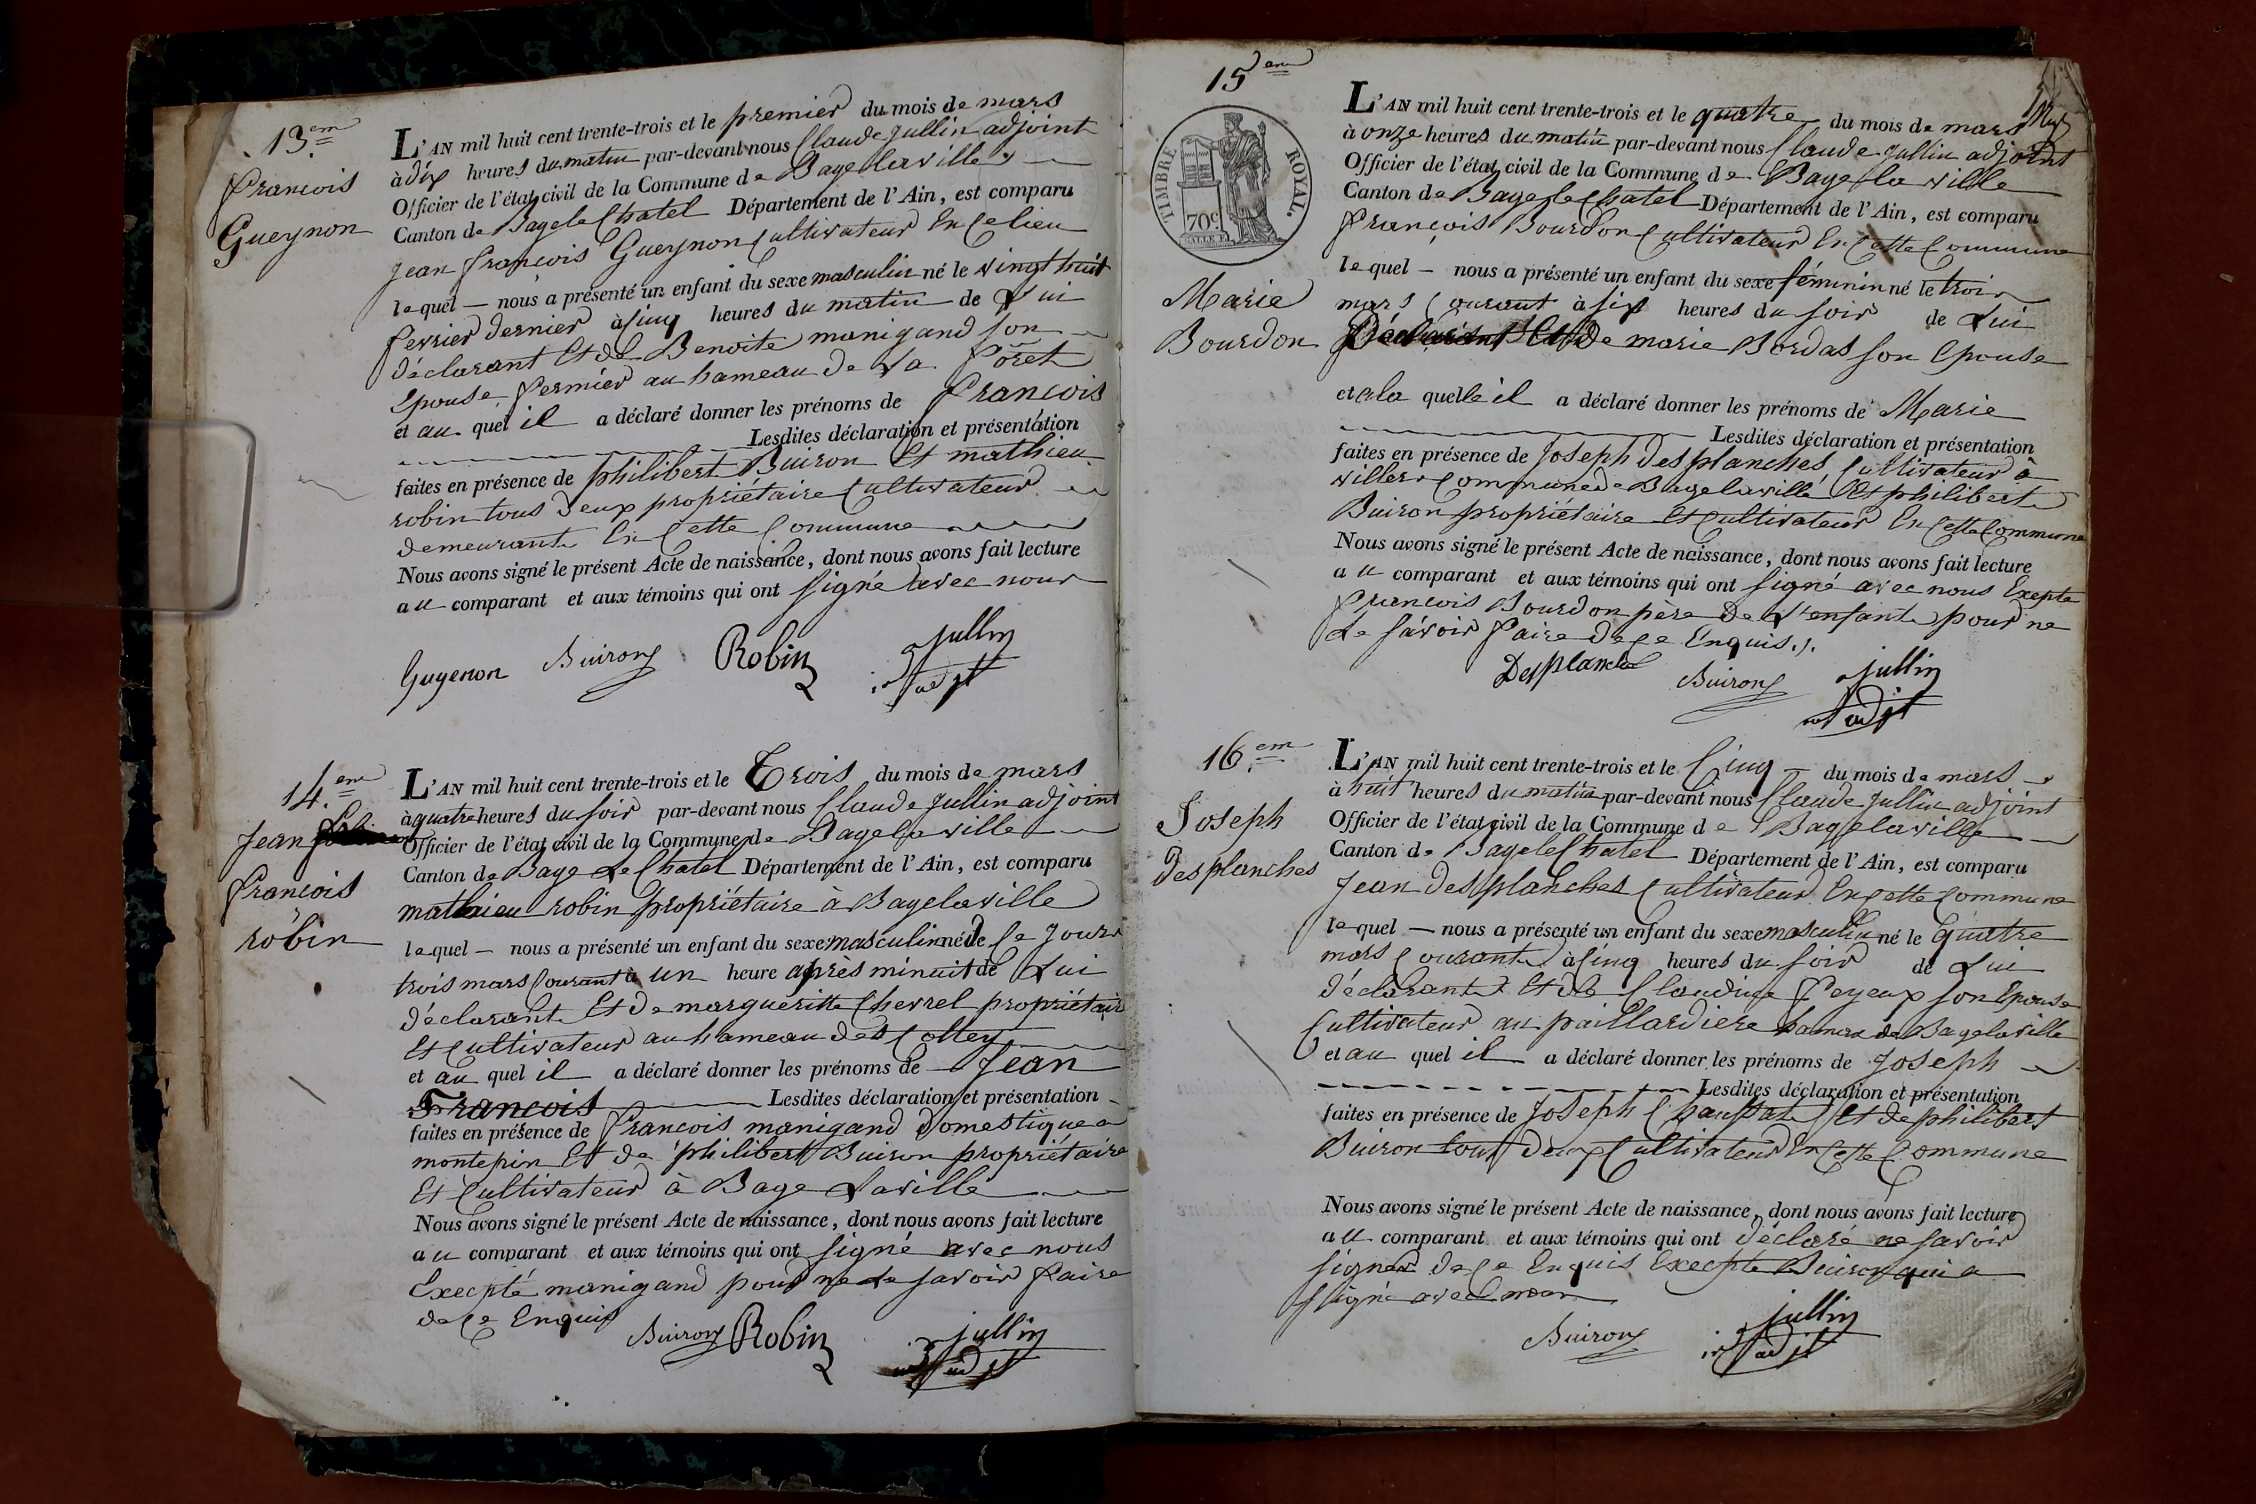 13.em
François
Gueynon
L'AN mil huit cent trente-trois et le premier du mois de mars
à dix heures du matin par-devant nous Claude Jullin adjoint
Officier de l'état civil de la Commune de Bage la ville
Canton de Bage le Chatel Département de l'Ain, est comparu
Jean françois Gueynon Cultivateur En Ce lieu
lequel — nous a présenté un enfant du sexe masculin né le vingt huit
fevrier dernier à Cinq heures du matin de Lui
déclarant Et de Benoite manigand son
Epouse fermier au hameau de La Forêt
et au quel il a déclaré donner les prénoms de François
Lesdites déclaration et présentation
faites en présence de philibert Buiron Et mathieu
robin tous deux propriétaire Cultivateur
demeurant En Cette Commune
Nous avons signé le présent Acte de naissance, dont nous avons fait lecture
au comparant et aux témoins qui ont signé avec nous
Guyenon Buiron Robin Jullin
adjt
14.em
Jean
François
robin
L'AN mil huit cent trente-trois et le Trois du mois de mars
à quatre heures du soir par-devant nous Claude Jullin adjoint
Officier de l'état civil de la Commune de Bage la ville
Canton de Bage Le Chatel Département de l'Ain, est comparu
mathieu robin propriétaire à Bage la ville
lequel — nous a présenté un enfant du sexe masculin né le Ce Jour
trois mars Courant à un heure après minuit de Lui
déclarant Et de margueritte Chevrel propriétaire
Et Cultivateur au hameau des Colley
et au quel il a déclaré donner les prénoms de Jean
François Lesdites déclaration et présentation
faites en présence de François manigand domestique a
montepin Et de philibert Buiron propriétaire
Et Cultivateur à Bage Laville
Nous avons signé le présent Acte de naissance, dont nous avons fait lecture
au comparant et aux témoins qui ont signé avec nous
Execpté manigand pour ne Le savoir faire
de Ce Enquis
Buiron Robin Jullin
adjt
15em
TIMBRE ROYAL.
70c
Marie
Bourdon
L'AN mil huit cent trente-trois et le quatre du mois de mars
à onze heures du matin par-devant nous Claude Jullin adjoint
Officier de l'état civil de la Commune de Bage la ville
Canton de Bage le Chatel Département de l'Ain, est comparu
François Bourdon Cultivateur En Cette Commune
lequel — nous a présenté un enfant du sexe féminin né le trois
mars Courant à six heures du soir de Lui
Déclarant Et de marie Bordas son Epouse
et a la quelle il a déclaré donner les prénoms de Marie
Lesdites déclaration et présentation
faites en présence de Joseph Desplanches Cultivateur à
villers Commune de Bage la ville Et philibert
Buiron propriétaire Et Cultivateur En Cette Commune
Nous avons signé le présent Acte de naissance, dont nous avons fait lecture
au comparant et aux témoins qui ont signé avec nous Exepte
François Bourdon père De L'enfant pour ne
Le savoir faire de Ce Enquis.
Desplanche Buiron Jullin
adjt
16.em
Joseph
Desplanches
L'AN mil huit cent trente-trois et le Cinq du mois de mars
à huit heures du matin par-devant nous Claude Jullin adjoint
Officier de l'état civil de la Commune de Bage la ville
Canton de Bage le Chatel Département de l'Ain, est comparu
Jean Desplanches Cultivateur En Cette Commune
lequel — nous a présenté un enfant du sexe masculin né le quatre
mars Courant à Cinq heures du soir de Lui
déclarant Et de Claudine Feyeux son Epouse
Cultivateur au paillardiere hameau de Bage la ville
et au quel il a déclaré donner les prénoms de Joseph
Lesdites déclaration et présentation
faites en présence de Joseph Et de philibert
Buiron tout deux Cultivateur En Cette Commune
Nous avons signé le présent Acte de naissance, dont nous avons fait lecture
au comparant et aux témoins qui ont déclaré ne savoir
signer de Ce Enquis Execpte Buiron qui a
signé avec nous
Buiron Jullin
adjt